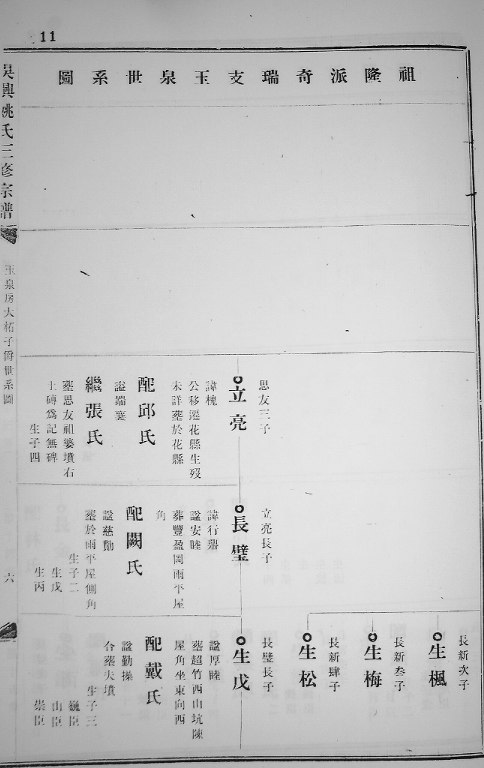 11
祖隆派奇瑞支玉泉世系圖
吳興姚氏三修宗譜
玉泉房大祏子爵世系圖
六
思友三子
立亮
諱槐
公移遷花縣生歿
未詳葬於花縣
配邱氏
諡端蓌
繼張氏
葬思友祖婆墳右
土磚爲記無碑
生子四
立亮長子
長璧
諱行
諡安睦
葬豐盈岡雨平屋
角
配闕氏
諡慈勤
葬於雨平屋側角
生子二
生戊
生丙
長新次子
生楓
長新叁子
生梅
長新肆子
生松
長璧長子
生戊
諡厚睦
葬超竹西山坑陳
屋角坐東向西
配戴氏
諡勤操
合葬夫墳
生子三
巍臣
山臣
崇臣